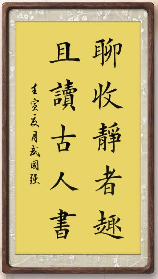 聊收靜者趣
且讀古人書
壬寅夏月武國強